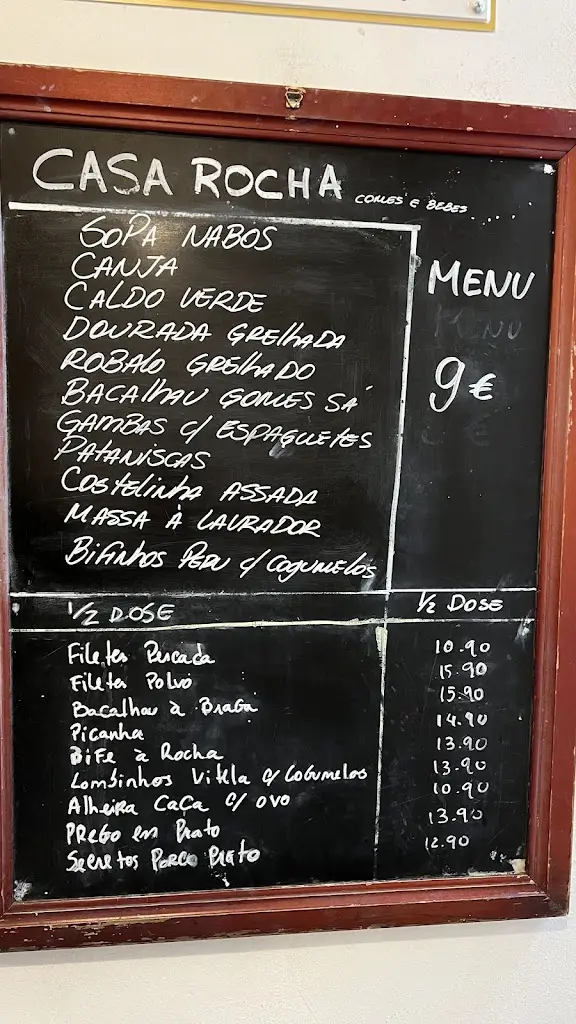 CASA ROCHA COMES E BEBES.....
SOPA NABOS
CANJA
CALDO VERDE
DOURADA GRELHADA
ROBALO GRELHADO
BACALHAU GOMES SÁ
GAMBAS C/ ESPAGUETES
PATANISCAS
COSTELINHA ASSADA
MASSA À LAVRADOR
BIFINHOS PERU C/ COGUMELOS
MENU
MENU
9 €
1/2 DOSE 1/2 DOSE
Filetes Pescada 10.90
Filetes Polvo 15.90
Bacalhau à Braga 15.90
Picanha 14.90
BiFe à Rocha 13.90
Lombinhos Vitela c/ Cogumelos 13.90
Alheira CaCa c/ ovo 10.90
PREGO em Prato 13.90
Secretos PORCO PRETO 12.90